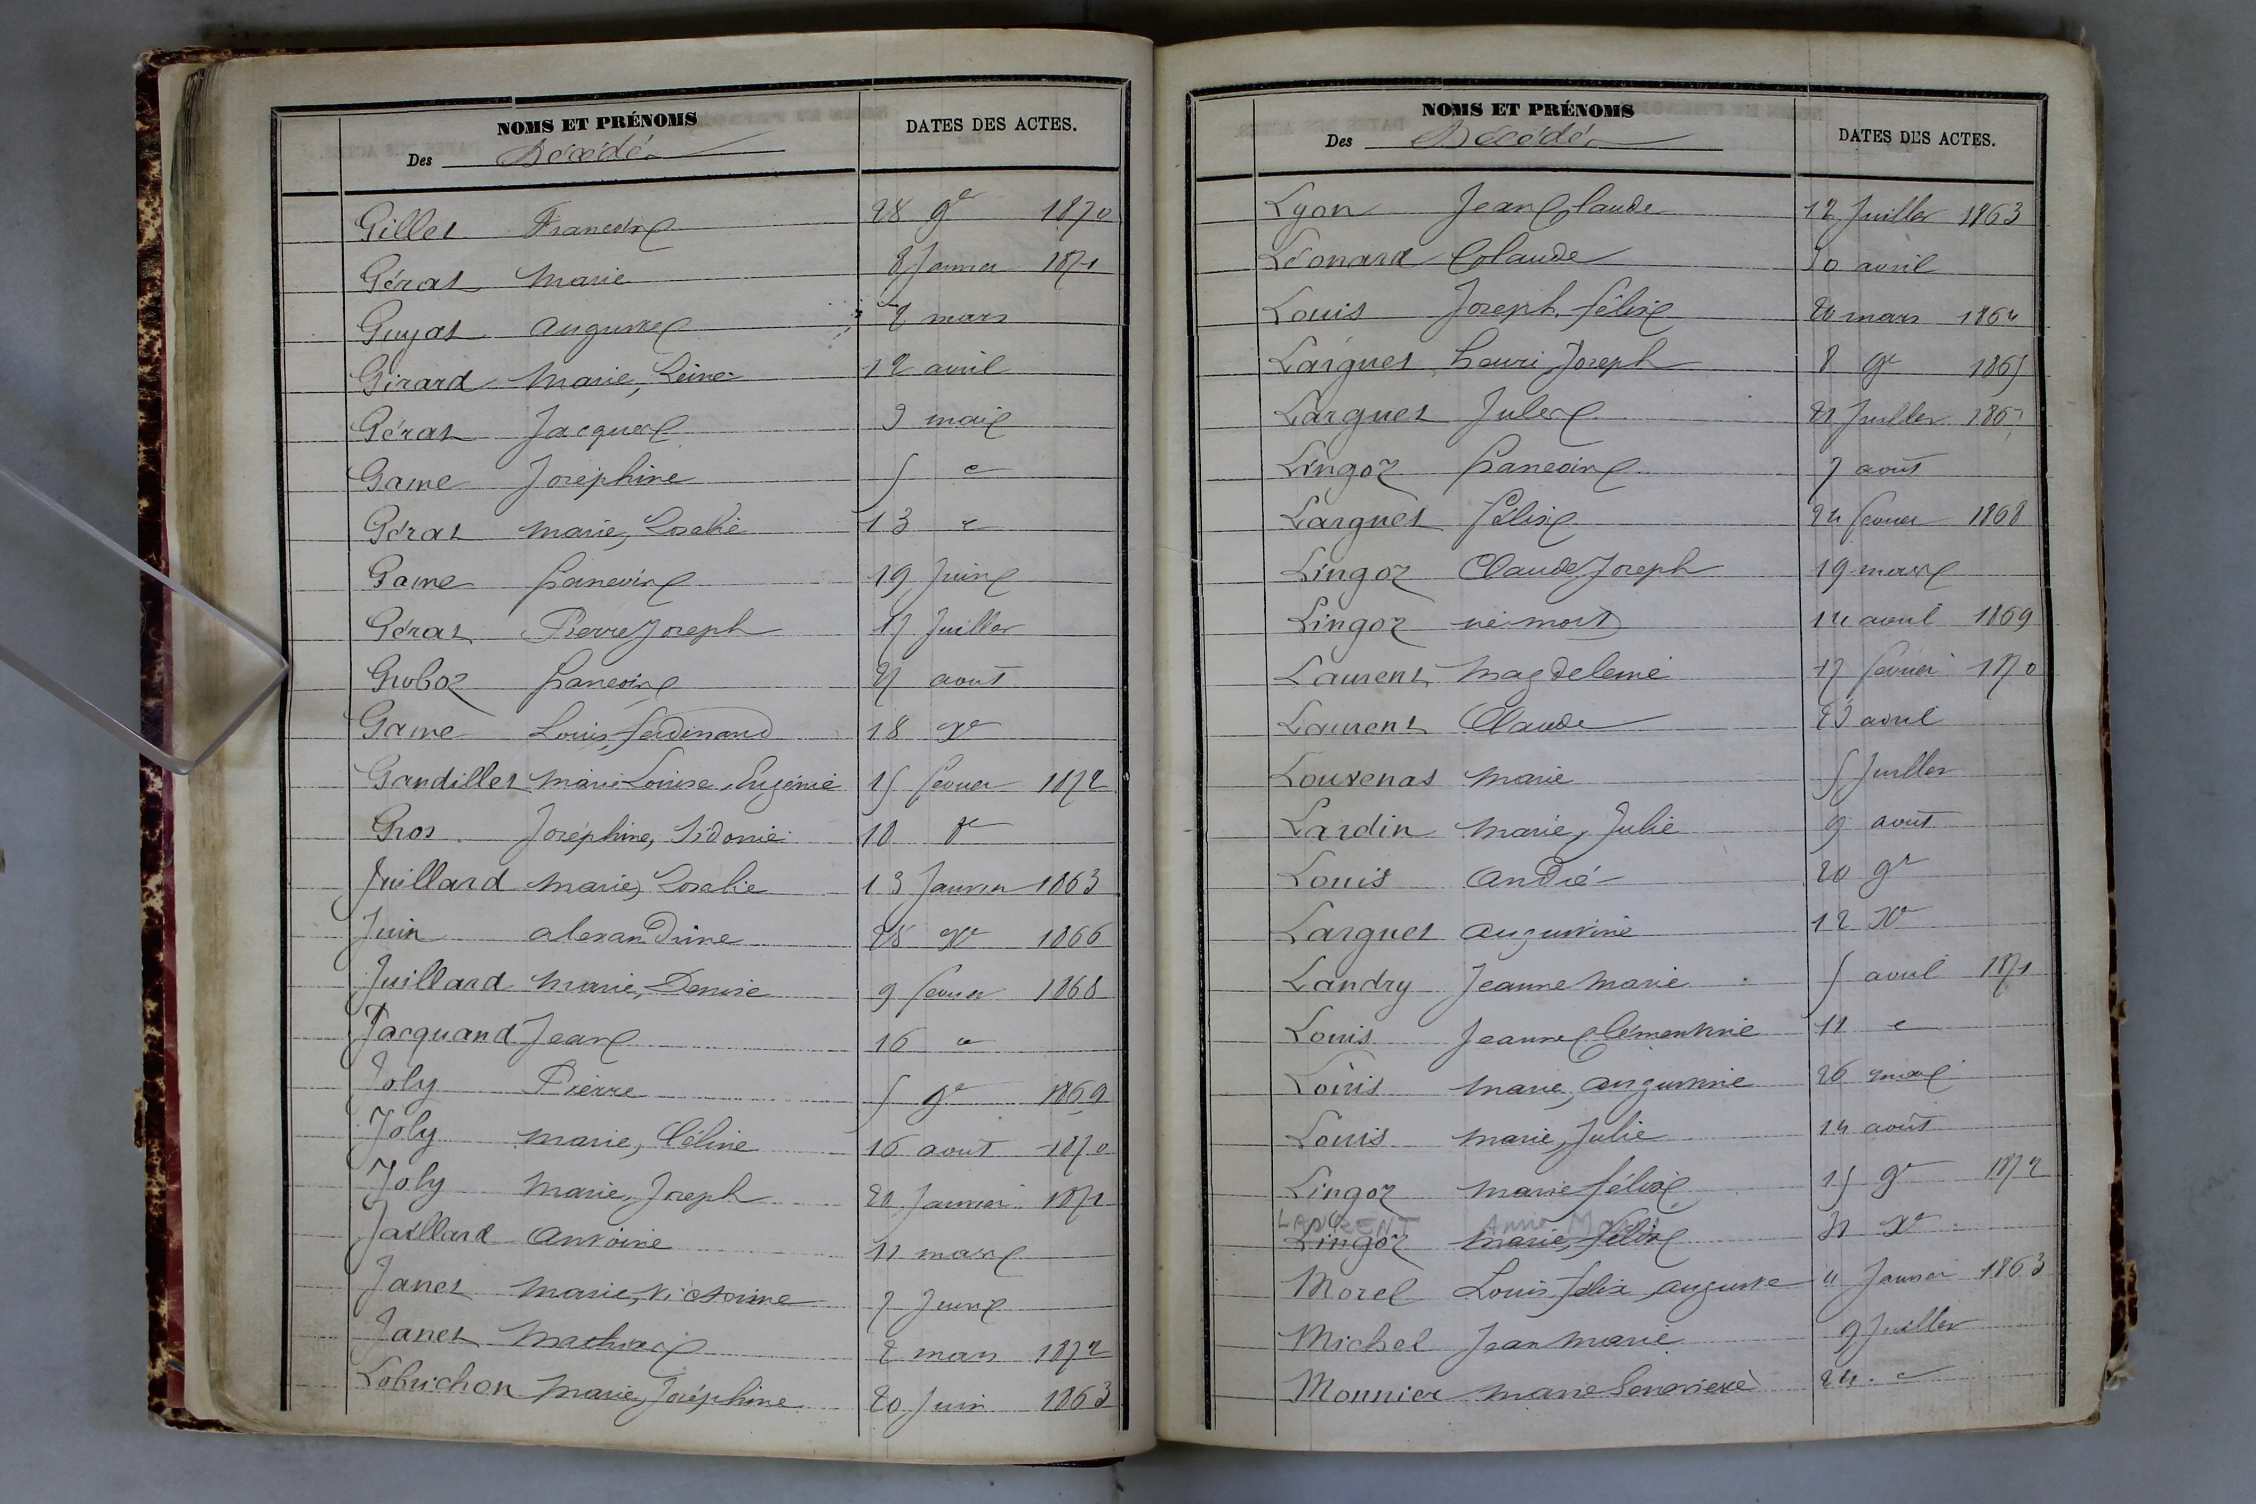 NOMS ET PRÉNOMS
Des Décédés
DATES DES ACTES.
Gillet François 28 9e 1870
Gérat Marie 8 Janvier 1871
Guyat auguste 2 mars
Girard Marie, 12 avril
Gérat Jacques 3 mai
Game Joséphine 5 "
Gérat marie, Rosalie 13 "
Game françois 19 Juin
Gérat Pierre Joseph 17 Juillet
Groboz françois 27 aout
Game Louis, ferdinand 18 Xe
Gandillet marie Louise, Eugénie 15 fevrier 1872
Gros Joséphine, Sidonie 10 8e
Juillard marie, Rosalie 13 Janvier 1863
Juin alexandrine 28 Xe 1866
Juillard Marie, Denise 9 fevrier 1868
Jacquand Jean 16 "
Joly Pierre 5 9e 1869
Joly Marie, Céline 16 aout 1870
Joly Marie, Joseph 20 Janvier 1871
Jaillard Antoine 11 mars
Janet Marie, Victorine 7 Juin
Janet Mathieu 2 mars 1872
Lobrichon Marie, Joséphine 20 Juin 1863
NOMS ET PRÉNOMS
Des Décédés
DATES DES ACTES.
Lyon Jean Claude 12 Juillet 1863
Léonard Claude 30 avril
Louis Joseph, félix 20 mars 1864
Larguet henri Joseph 8 9e 1865
Larguet Jules 21 Juillet 1867
Lingoz françois 7 août
Larguet félix 24 fevrier 1868
Lingoz Claude Joseph 19 mars
Lingoz né mort 14 avril 1869
Laurent Magdeleine 17 février 1870
Laurent Claude 23 avril
Louvenas Marie 5 Juillet
Lardin Marie, Julie 9 août
Louis André 20 9e
Larguet augustine 12 Xe
Landry Jeanne Marie 5 avril 1871
Louis Jeanne Clémentine 11 "
Louis Marie, augustine 26 mai
Louis Marie, Julie 14 août
Lingoz Marie félix 15 9e 1872
LAURENT Anne Marie
Lingoz Marie, félix 31 Xe
Morel Louis félix auguste 11 Janvier 1863
Michel Jean Marie 9 Juillet
Mounier Marie Genevieve 24 "